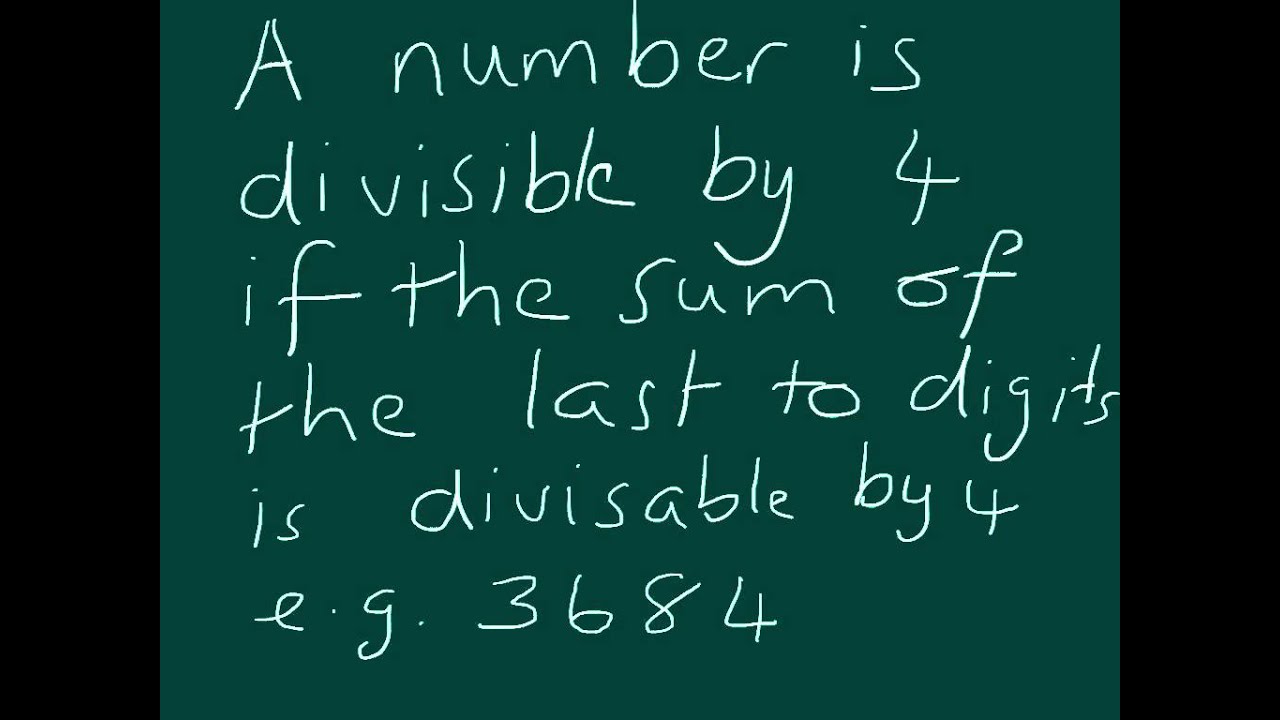 A number is
divisible by 4
if the sum of
the last to digits
is divisable by 4
e.g. 3684